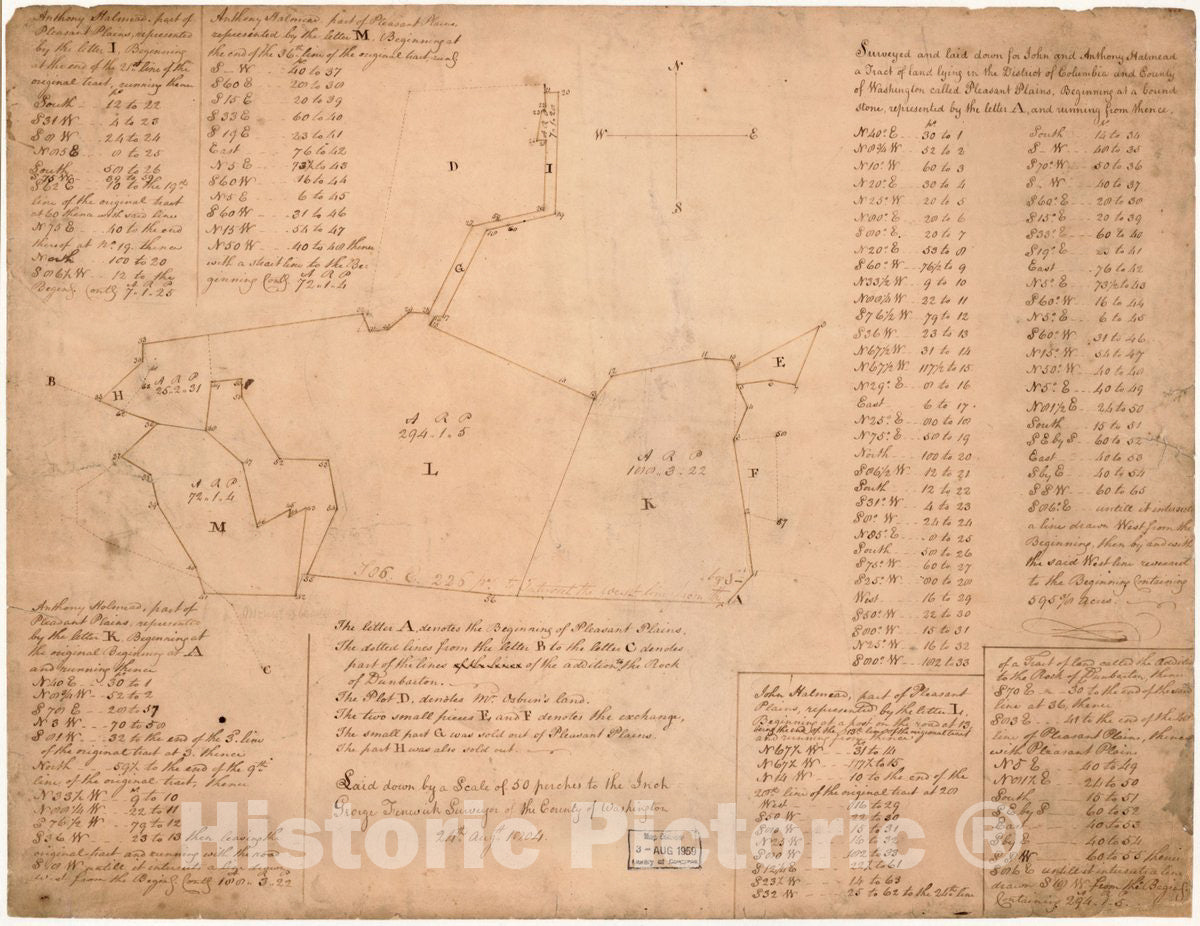 Anthony Holmead, part of
Pleasant Plains, represented
by the letter I, Beginning
at the end of the 21st line of the
original tract, running thence
South 12 to 22
S 31 W 4 to 23
S 8 W 24 to 24
N 85 E 8 to 25
South 58 to 26
S 62 E 10 to the 19th
line of the original tract
at 60 thence with said line
N 75 E 40 to the end
thereof at No. 19 thence
North 100 to 20
S 86½ W 12 to the
Begin'g Cont'g 7..1..25
Anthony Holmead, part of Pleasant Plains,
represented by the letter M, Beginning at
the end of the 36th line of the original tract,
S – W 40 to 37
S 60 E 20 to 38
S 15 E 20 to 39
S 33 E 60 to 40
S 19 E 23 to 41
East 76 to 42
N 5 E 73½ to 43
S 60 W 16 to 44
N 5 E 6 to 45
S 60 W 31 to 46
N 15 W 54 to 47
N 50 W 40 to 48 thence
with a strait line to the Be-
ginning Cont'g A R P 72..1..4
Surveyed and laid down for John and Anthony Holmead
a Tract of land lying in the District of Columbia and County
of Washington called Pleasant Plains, Beginning at a bound
stone, represented by the letter A, and running from thence.
N 40° E 30 to 1
N 8¾ W 52 to 2
N 10° W 60 to 3
N 20° E 30 to 4
N 25° W 20 to 5
N 80° E 20 to 6
S 80° E 20 to 7
N 20° E 53 to 8
S 60° W 76½ to 9
N 33½ W 9 to 10
N 88¼ W 22 to 11
S 76½ W 79 to 12
S 36 W 23 to 13
N 67½ W 31 to 14
N 67½ W 117½ to 15
N 29° E 8 to 16
East 6 to 17
N 25° E 80 to 18
N 75° E 58 to 19
North 100 to 20
S 86½ W 12 to 21
South 12 to 22
S 31° W 4 to 23
S 8° W 24 to 24
N 85° E 8 to 25
South 58 to 26
S 75° W 60 to 27
S 25° W 80 to 28
West 16 to 29
S 50° W 22 to 30
S 80° W 15 to 31
N 25° W 16 to 32
S 80° W 102 to 33
South 14 to 34
S – W 48 to 35
S 70° W 50 to 36
S – W 40 to 37
S 60° E 20 to 38
S 15° E 20 to 39
S 33° E 60 to 40
S 19° E 23 to 41
East 76 to 42
N 5° E 73½ to 43
S 60° W 16 to 44
N 5° E 6 to 45
S 60° W 31 to 46
N 15° W 54 to 47
N 50° W 40 to 48
N 5° E 40 to 49
N 81½ E 24 to 50
South 15 to 51
S E by S 60 to 52
East 40 to 53
S by E 40 to 54
S S W 60 to 55
S 86° E untill it intersects
a line drawn West from the
Beginning, then by and with
the said West line reversed
to the Beginning Containing
595⅞ acres
N
W
E
S
D
I
A R P
7..1..20
G
E
F
B
H
A R P
25..2..31
A R P
294..1..5
L
A R P
188..3..22
K
A R P
72..1..4
M
S 86 E 226
A
C
Anthony Holmead, part of
Pleasant Plains, represented
by the letter K, Beginning at
the original Beginning at A
and running thence
N 40 E 30 to 1
N 8¾ W 52 to 2
S 78 E 28 to 57
N 3 W 70 to 58
S 81 W 32 to the end of the 3d line
of the original tract at 3, thence
North 59½ to the end of the 9th
line of the original tract, thence
N 33½ W 9 to 10
N 88¼ W 22 to 11
S 76½ W 79 to 12
S 36 W 23 to 13 then leaving the
original tract and running with the road
S 18 W untill it intersects a line drawn
West from the Begin'g Cont'g 188..3..22
The letter A, denotes the Beginning of Pleasant Plains,
The dotted lines from the letter B to the letter C denotes
part of the lines of the addition to the Rock
of Dunbarton.
The Plot D, denotes Mr. Osburn's land.
The two small pieces E and F denotes the exchange,
The small part G was sold out of Pleasant Plains.
The part H was also sold out.
Laid down by a Scale of 50 perches to the Inch
George Fenwick Surveyor of the County of Washington
24th Augt. 1804.
3 - AUG 1959
Library of Congress
John Holmead, part of Pleasant
Plains, represented by the letter L,
Beginning at a post on the road at 13
being the end of the 13th line of the original tract
and running from thence
N 67½ W 31 to 14
N 67½ W 117½ to 15
N 14 W 10 to the end of the
28th line of the original tract at 28
West 16 to 29
S 50 W 22 to 30
S 80 W 15 to 31
N 25 W 16 to 32
S 80 W 102 to 33
S 12¾ E 22½ to 61
S 23½ W 14 to 63
S 32 W 25 to 62 to the 24th line
of a Tract of land called the Addition
to the Rock of Dunbarton, thence
S 70 E 30 to the end of the said
line at 36, thence
S 83 E 41 to the end of the 48th
line of Pleasant Plains, thence
with Pleasant Plains
N 5 E 40 to 49
N 81½ E 24 to 50
South 15 to 51
S E by S 60 to 52
East 40 to 53
S by E 40 to 54
S S W 60 to 55 thence
S 86 E untill it intersects a line
drawn S 18 W from the Begin'g
Containing 294..1..5
Historic Pictoric ®